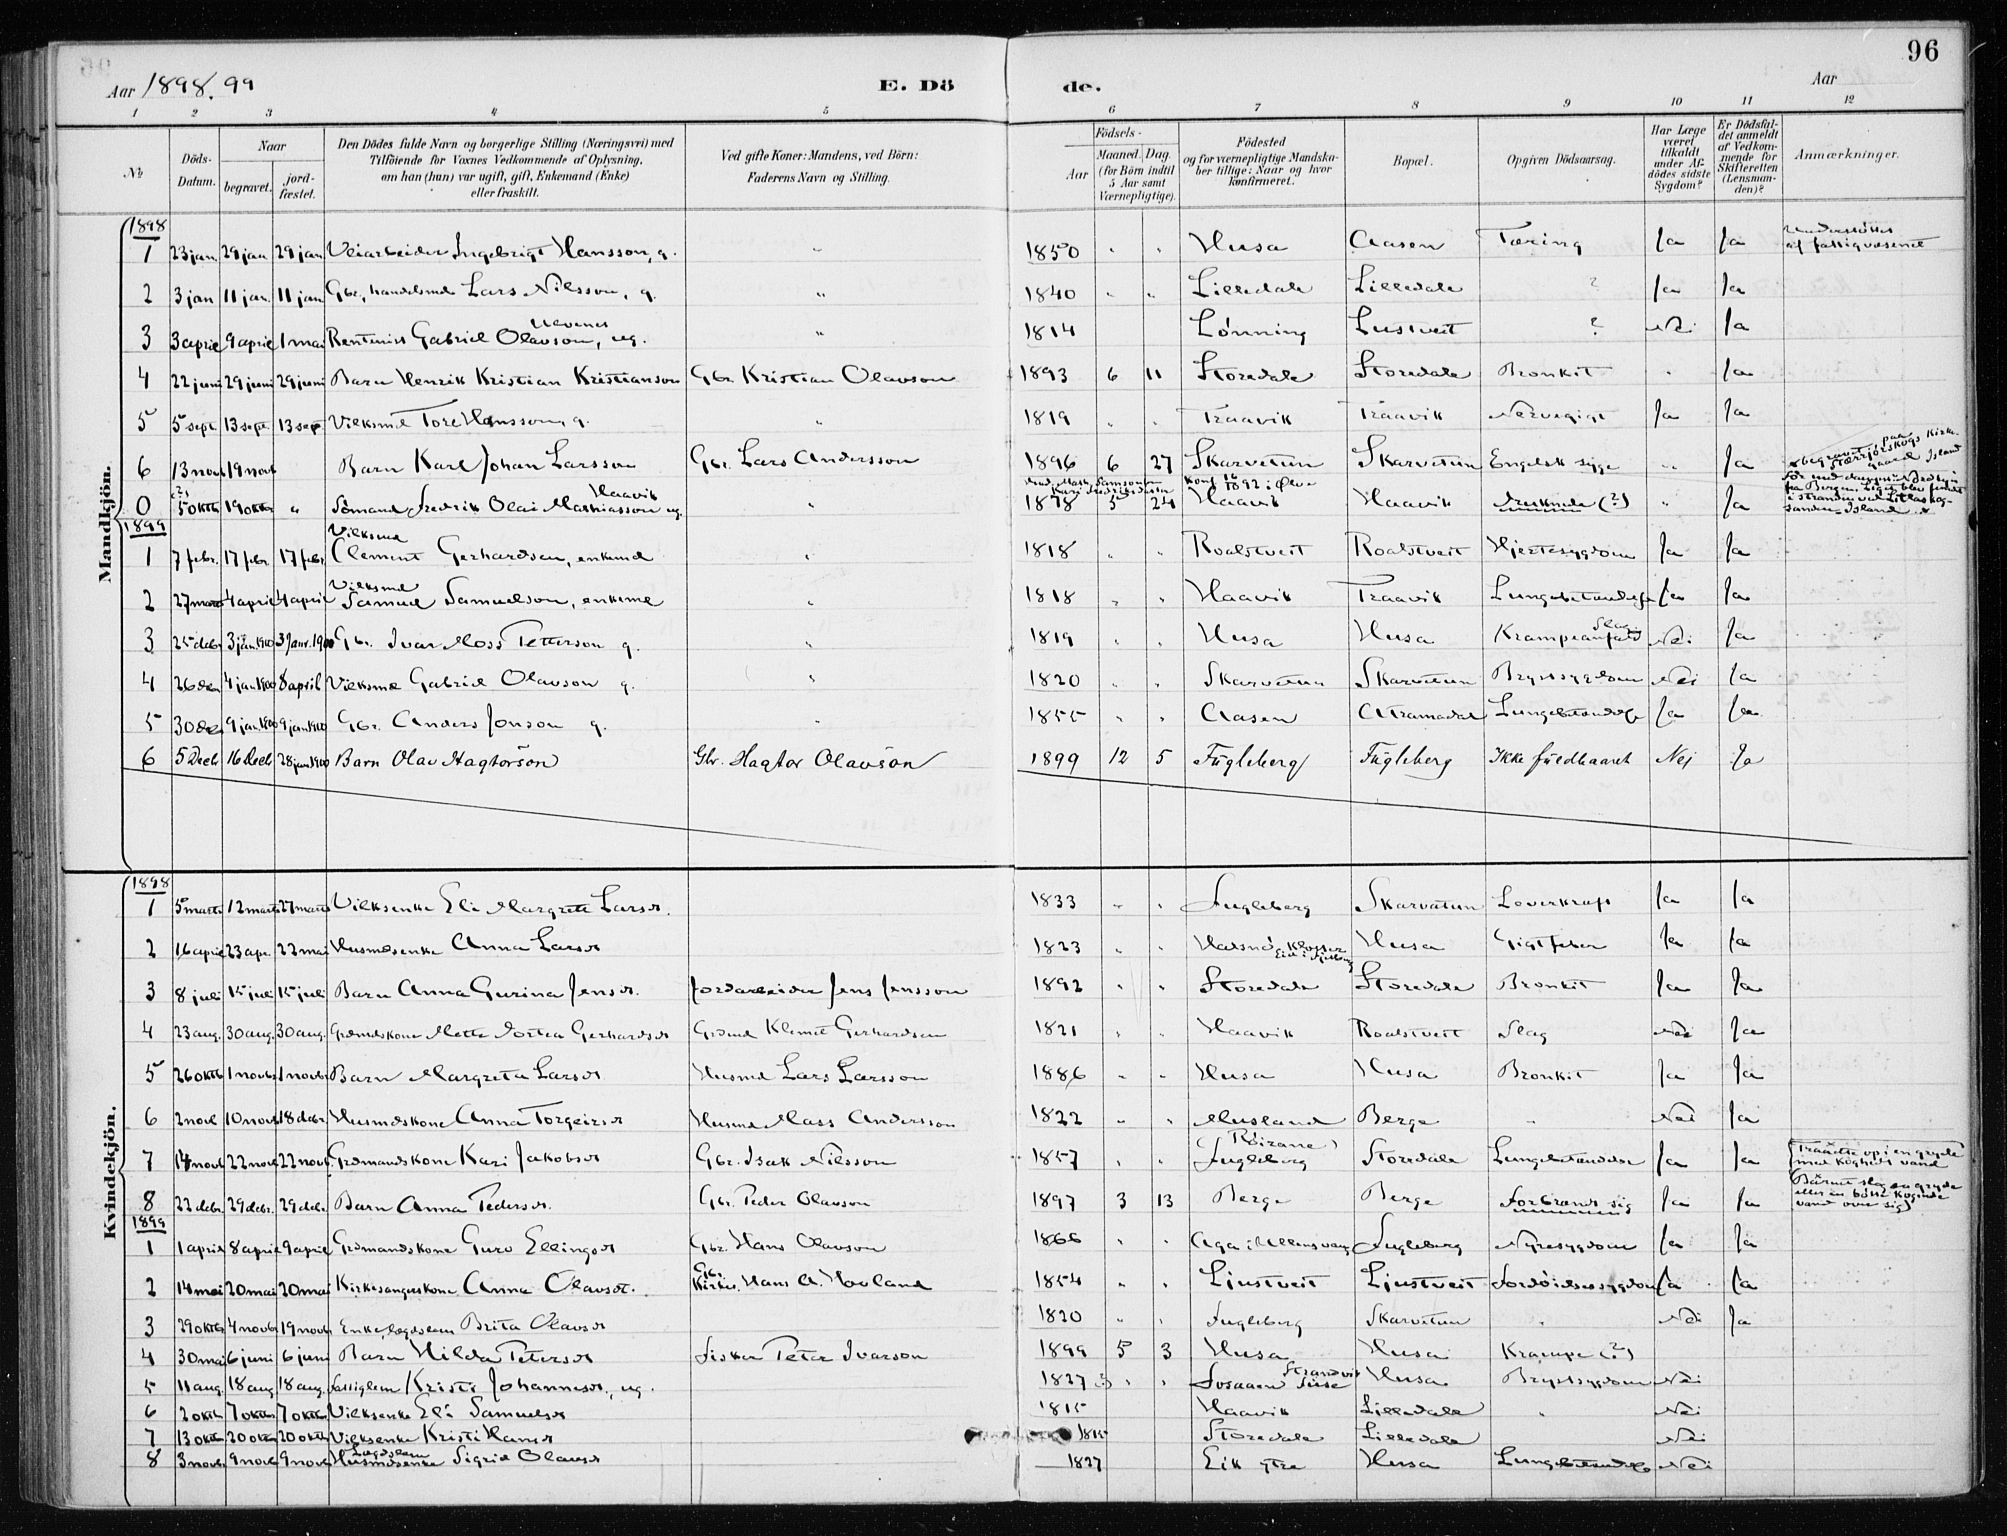 96
Aar 1898.99
E. Dö
de.
Aar
1 2 3 4 5 6 7 8 9 10 11 12
№
Döds-Datum.
Naar
begravet.
jordfæstet.
Den Dödes fulde Navn og borgerlige Stilling (Næringsvei) med Tilföiende for Voxnes Vedkommende af Oplysning, om han (hun) var ugift, gift, Enkemand (Enke) eller fraskilt.
Ved gifte Koner: Mandens, ved Börn: Faderens Navn og Stilling.
Födsels-
Aar
Maaned. Dag.
(for Börn indtil 5 Aar samt Værnepligtige).
Födested og for værnepligtige Mandskaber tillige: Naar og hvor konfirmeret.
Bopæl.
Opgiven Dödsaarsag.
Har Læge været tilkaldt under Afdödes sidste Sygdom?
Er Dödsfaldet anmeldt af Vedkommende for Skifteretten (Lensmanden)?
Anmærkninger.
Mandkjön.
1898
1 23 jan. 29 jan 29 jan Veiarbeider Ingebrigt Hansson, g. " 1850 " " Husa Aasen Tæring Ja Ja Understøttet af fattigvæsenet
2 3 jan 11 jan. 11 jan Gbr, handelsmd Lars Nilsson, g. " 1840 " " Lilledale Lilledale ? Ja Ja
3 3 april 9 april 1 mai Rentenist Gabriel Olavson, ug. " 1814 Lønning Lustveit ? Nei Ja
4 22 juni 29 juni 29 juni Barn Henrik Kristian Kristianson Gbr Kristian Olavson 1893 6 11 Storedale Storedale Bronkit " Ja
5 5 sept. 13 sept. 13 sept Vilksmd Tore Hansson, g. " 1819 " " Traavik Traavik Ja Ja
6 13 novb 19 novb Barn Karl Johan Larsson Gbr. Lars Andersson 1896 6 27 Skarvatun Skarvatun Engelsk syge " Ja
0 5 oktb 19 oktbr " Sömand Fredrik Olai Mathiasson Haavik ug. 1878 5 24 Haavik Haavik Druknede (?) " Ja
1899
1 7 febr. 17 febr. 17 febr Vilksmd Clement Gerhardsen, enkemd " 1818 " " Roaldstveit Roaldstveit Hjertesygdom Ja Ja
2 27 mars 4 april 4 april Vilksmd Samuel Samuelson, enkemd " 1818 " " Haavik Traavik Lungebetændelse Ja Ja
3 25 decbr 3 jan. 1900 3 Janr. 1900 Gbr. Ivar Moss Petterson g. " 1819 " " Husa Husa Krampeanfald Slag Nei Ja
4 26 dec 4 jan 1900 8 april Vilksmd Gabriel Olavson g. " 1820 " " Skarvatun Skarvatun Brystsygdom Nei Ja
5 30 dec 9 jan 1900 9 jan 1900 Gbr. Anders Jonson g. " 1855 " " Aasen Lungebetændelse Ja Ja
6 5 Decb 16 Decb 28 jan 1900 Barn Olav Hagtorsön Gbr. Hagtor Olavsön 1899 12 5 Fugleberg Fugleberg Ikke fuldbaaret Nej Ja
Kvindekjön.
1898
1 5 marts 12 marts 27 marts Vilksenke Eli Margrete Larsdt. 1833 " " Fugleberg Skarvatun Leverkræft Ja Ja
2 16 april 23 apr. 22 mai Husmdsenke Anna Larsdt 1823 " " Halsnö Kloster Husa Gigtfeber Ja Ja
3 8 juli 15 juli 15 juli Barn Anna Gurina Jensdt. Jordarbeider Jens Jensson 1892 " " Storedale Storedale Bronkit Ja Ja
4 23 aug. 30 aug. 30 aug. Grdmdskone Mette Dortea Gerhardsdt Grdmd Klemet Gerhardsen 1821 " " Haavik Roaldstveit Slag Nei Ja
5 26 oktb 1 novbr 1 novbr Barn Margreta Larsdt Husmd Lars Larsson 1886 " " Husa Husa Bronkit Ja Ja
6 2 novb 10 novb 18 decbr. Husmdskone Anna Torgeirsdt Husmd Mass Andersson 1822 " " Musland Berge " Nei Ja
7 14 novb 22 novb 22 novb. Grdmandskone Kari Jakobsdt Gbr. Isak Nilsson 1857 " " (Röirane) Fugleberg Storedale Lungebetændelse Ja Ja Traadte op i en gryde med koghedt vand
8 22 decbr 29 decbr. 29 decbr Barn Anna Pedersdt. Gbr. Peder Olavson 1897 3 13 Berge Berge Forbrændt sig Ja Ja Barnet slog en gryde eller en bötte kogende vand over sig
1899
1 1 april 8 april 9 april Grdmandskone Guro Ellingsdt Gbr. Hans Olavson 1866 " " Aga i Ullensvang Fugleberg Nyresygdom Ja Ja
2 14 mai 20 mai 20 mai Kirkesangerskone Anna Olavsdt. Gbr. Kirkes. Hans A. Hovland 1854 " " Ljustveit Ljustveit Fordöielsessygdom Ja Ja
3 29 oktb 4 novb 19 novb Enke, lægdslem Brita Olavsdt 1820 " " Fugleberg Skarvatun " Nei Ja
4 30 mai 6 juni 6 juni Barn Hilda Petersdt Fisker Peter Ivarson 1899 5 3 Husa Husa Krampe (?)
5 11 aug. 18 aug 18 aug. Fattiglem Kristi Johannesdt., ug. 1827 " " Strandvik Husa Brystsygdom Nei
6 2 oktb 7 oktb 7 oktb Vilksenke Eli Samuelsdt 1815 Haavik Lilledale " Nei
7 13 oktb 20 oktb 20 oktb Vilksenke Kristi Hansdt 1815 Storedale Lilledale Nei
8 3 novb 9 novb 9 novb Lægdslem Husmdsenke Sigrid Olavsdt 1827 Eik ytre Husa Lungebetændelse Nei